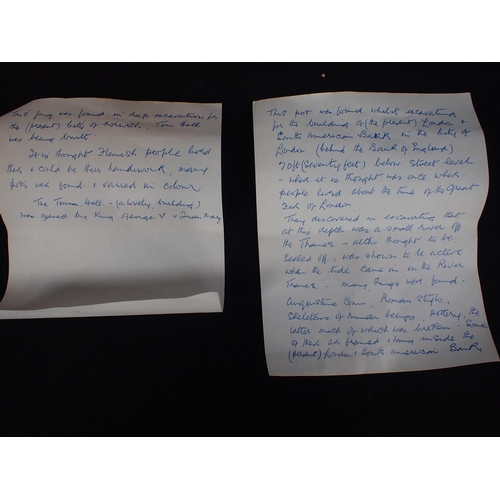 This jug was found in deep excavation for
the (present) City of Norwich Town Hall
was being built
It is thought Flemish people lived
there, & could be their handiwork, many
pots were found & varied in colour
The Town Hall - (a lovely building)
was opened by King George V & Queen Mary
This pot was found whilst excavating
for the building of (the present) London &
South American Bank in the City of
London (behind the Bank of England)
70ft (Seventy feet) below street level
- where it is thought was once where
people lived about the time of the Great
Fire of London
They discovered in excavating that
at this depth was a small river off
the Thames - altho thought to be
sealed off, was shown to be active
when the tide came in on the River
Thames. Many things were found.
Augustine Coins, Roman
skeletons of human beings, pottery, the
latter much of which was broken. Some
of these are framed & hung inside the
(present) London & South American Bank